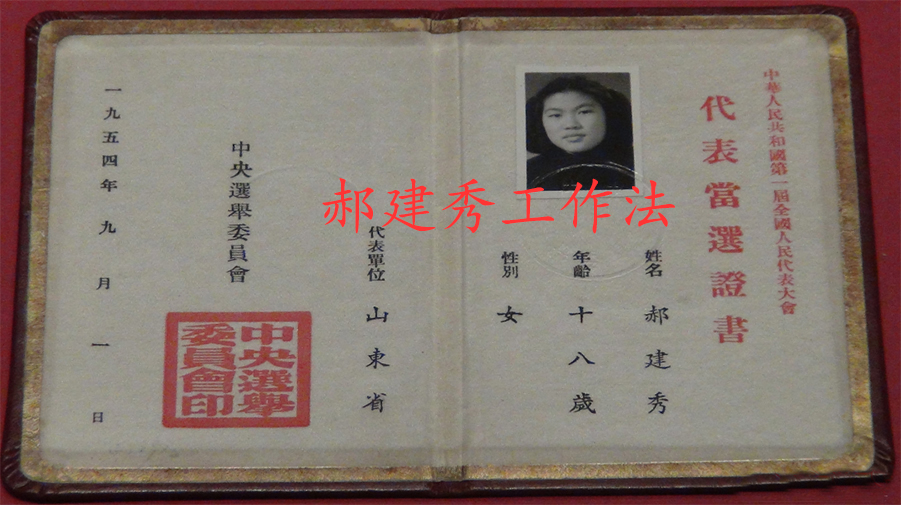 中華人民共和國第一屆全國人民代表大會
代表當選證書
姓名 郝建秀
年齡 十八歲
性別 女
代表單位 山東省
中央選舉委員會
中央選舉
委員會印
一九五四年九月一日
郝建秀工作法